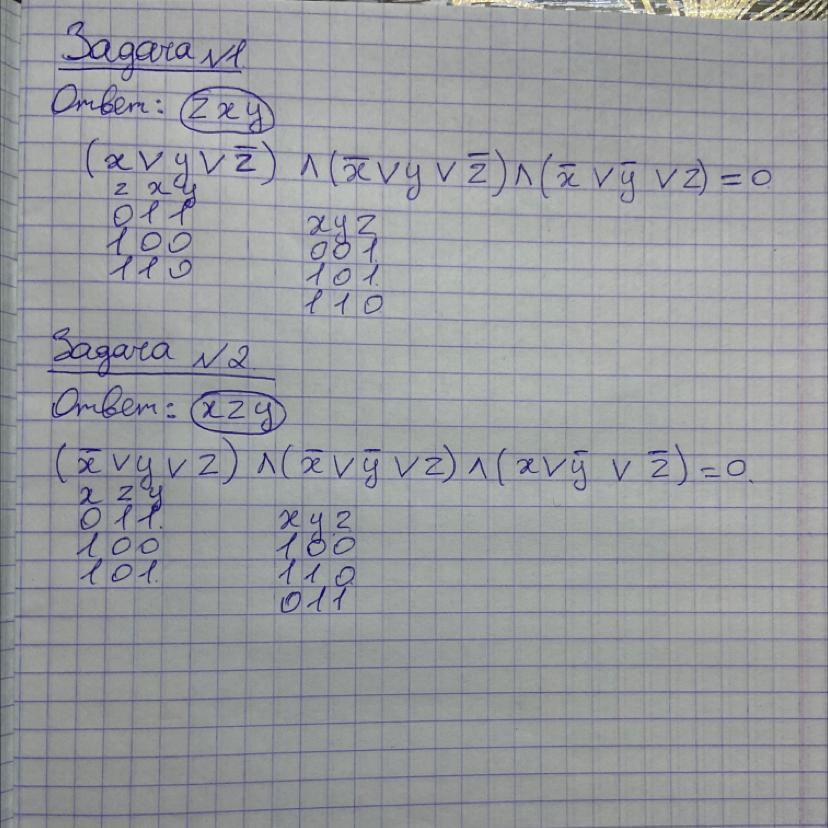 Задача №1
Ответ: zxy
(x ∨ y ∨ z̅) ∧ (x̅ ∨ y ∨ z̅) ∧ (x̅ ∨ y̅ ∨ z) = 0
z x y
0 1 1
1 0 0
1 1 0
x y z
0 0 1
1 0 1
1 1 0
Задача №2
Ответ: xzy
(x̅ ∨ y ∨ z) ∧ (x̅ ∨ y̅ ∨ z) ∧ (x ∨ y̅ ∨ z̅) = 0.
x z y
0 1 1.
1 0 0
1 0 1.
x y z
1 0 0
1 1 0
0 1 1